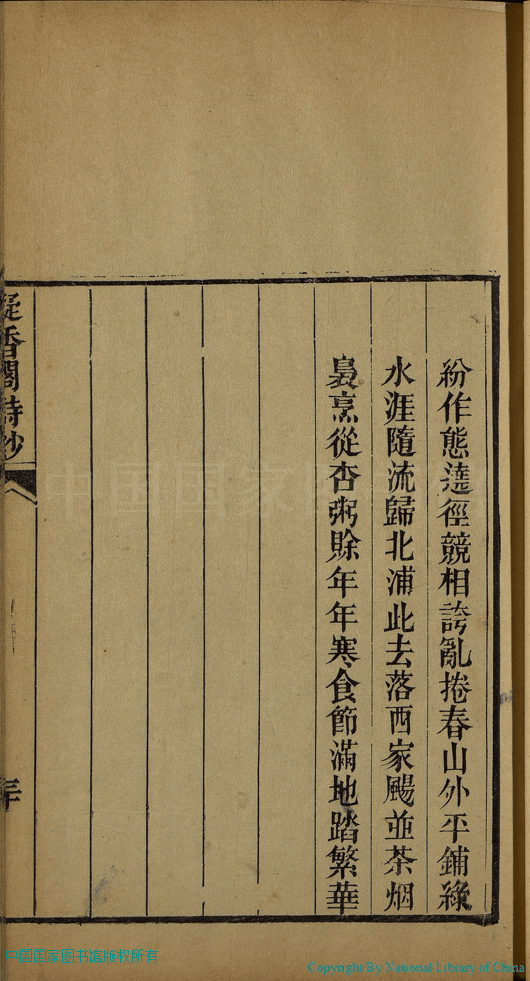 紛作態遶徑競相誇亂捲春山外平鋪綠
水涯隨流歸北浦此去落西家颺並茶烟
裊烹從杏粥賖年年寒食節滿地踏繁華
凝香閣詩鈔
中国国家图书馆版权所有
Copyright By National Library of China